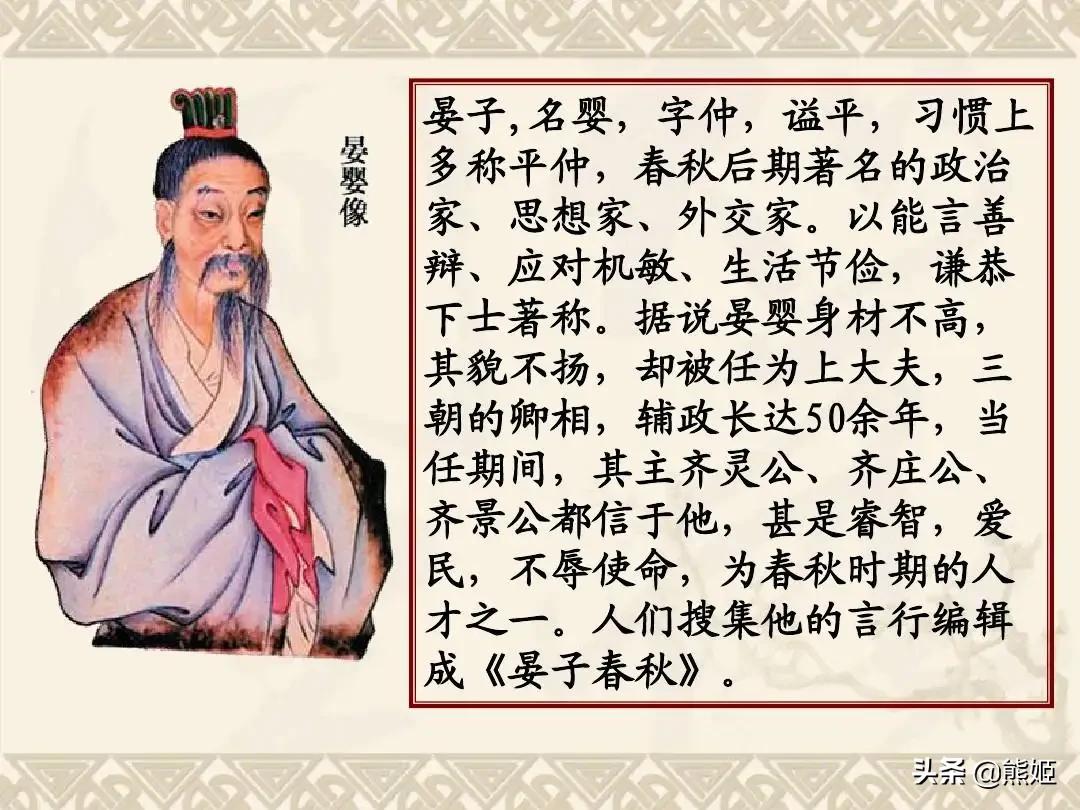 晏婴像
晏子,名婴，字仲，谥平，习惯上
多称平仲，春秋后期著名的政治
家、思想家、外交家。以能言善
辩、应对机敏、生活节俭，谦恭
下士著称。据说晏婴身材不高，
其貌不扬，却被任为上大夫，三
朝的卿相，辅政长达50余年，当
任期间，其主齐灵公、齐庄公、
齐景公都信于他，甚是睿智，爱
民，不辱使命，为春秋时期的人
才之一。人们搜集他的言行编辑
成《晏子春秋》。
头条 @熊姬